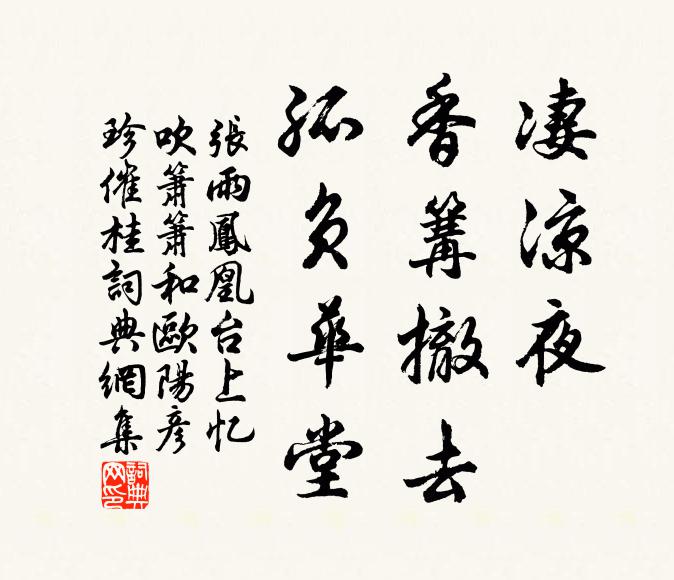 凄涼夜
香篝撤去
孤负華堂
張雨鳳凰台上忆
吹簫簫和歐陽彦
珍催桂詞典網集
詞典网印